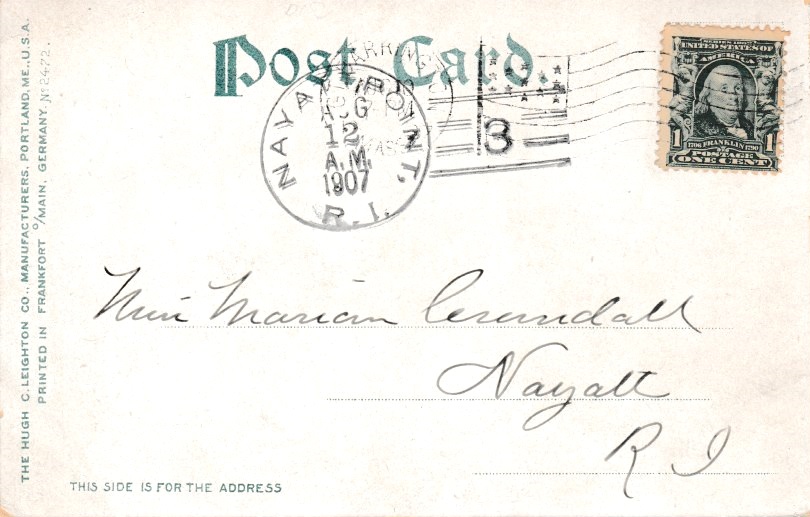 Post Card.
NAYATT POINT,
AUG
12
A.M.
1907
R.I.
3
SERIES 1902
UNITED STATES OF
AMERICA
1 1
1706 FRANKLIN 1790
POSTAGE
ONE CENT
Miss Marion Crandall
Nayatt
R I
THIS SIDE IS FOR THE ADDRESS
THE HUGH C. LEIGHTON CO., MANUFACTURERS, PORTLAND, ME., U.S.A.
PRINTED IN FRANKFORT o/MAIN, GERMANY. No 2472.